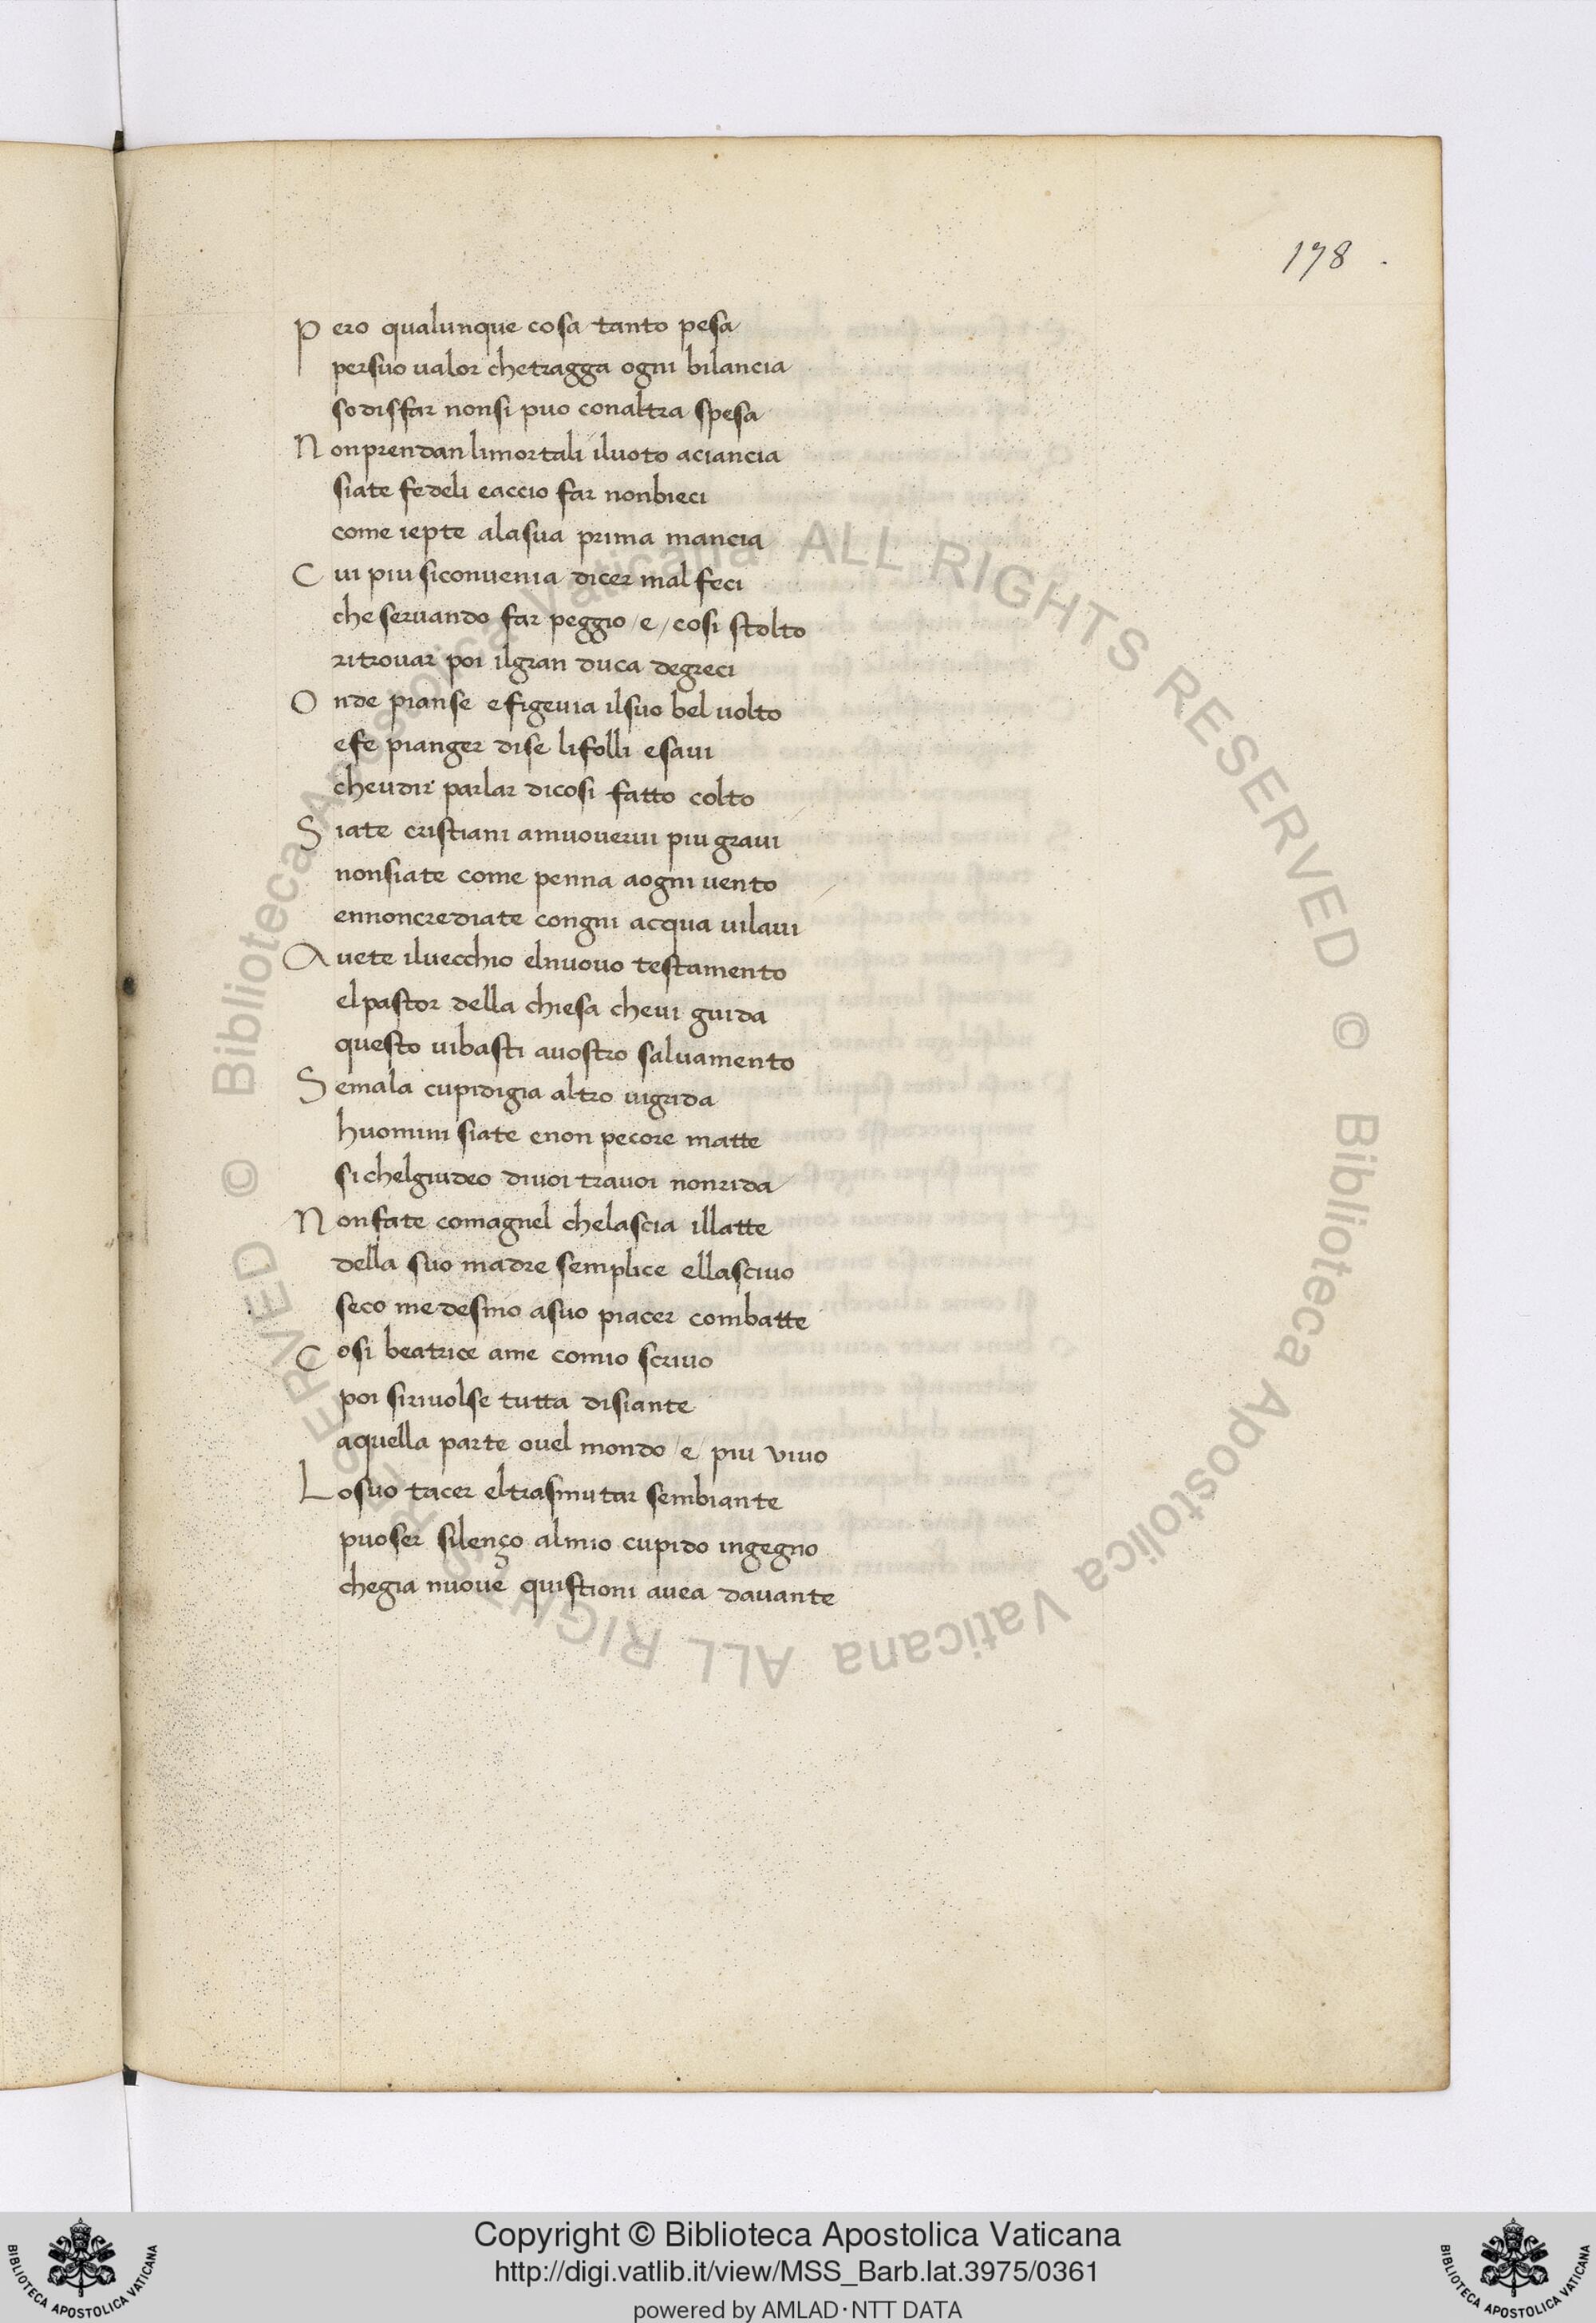 178
Pero qualunque cosa tanto pesa
persuo ualor chetragga ogni bilancia
sodisfar nonsi puo conaltra spesa
Nonprendan limortali iluoto aciancia
siate fedeli eaccio far nonbieci
come iepte alasua prima mancia
Cui piu siconuenia dicer mal feci
che seruando far peggio /e/ cosi stolto
ritrouar poi ilgran duca degreci
Onde pianse efigenia ilsuo bel uolto
efe pianger dise lifolli esaui
cheudir parlar dicosi fatto colto
Siate cristiani amuouerui piu graui
nonsiate come penna aogni uento
ennoncrediate congni acqua uilaui
Auete iluecchio elnuouo testamento
elpastor della chiesa cheui guida
questo uibasti auostro saluamento
Semala cupidigia altro uigrida
huomini siate enon pecore matte
si chelgiudeo diuoi trauoi nonrida
Nonfate comagnel chelascia illatte
della suo madre semplice ellasciuo
seco medesmo asuo piacer combatte
Cosi beatrice ame comio scriuo
poi siriuolse tutta disiante
aquella parte ouel mondo /e/ piu viuo
Losuo tacer eltrasmutar sembiante
puoser silenço almio cupido ingegno
chegia nuoue quistioni auea dauante
© Biblioteca Apostolica Vaticana ALL RIGHTS RESERVED © Biblioteca Apostolica Vaticana ALL RIGHTS RESERVED
Copyright © Biblioteca Apostolica Vaticana
http://digi.vatlib.it/view/MSS_Barb.lat.3975/0361
powered by AMLAD·NTT DATA
BIBLIOTECA APOSTOLICA VATICANA
BIBLIOTECA APOSTOLICA VATICANA